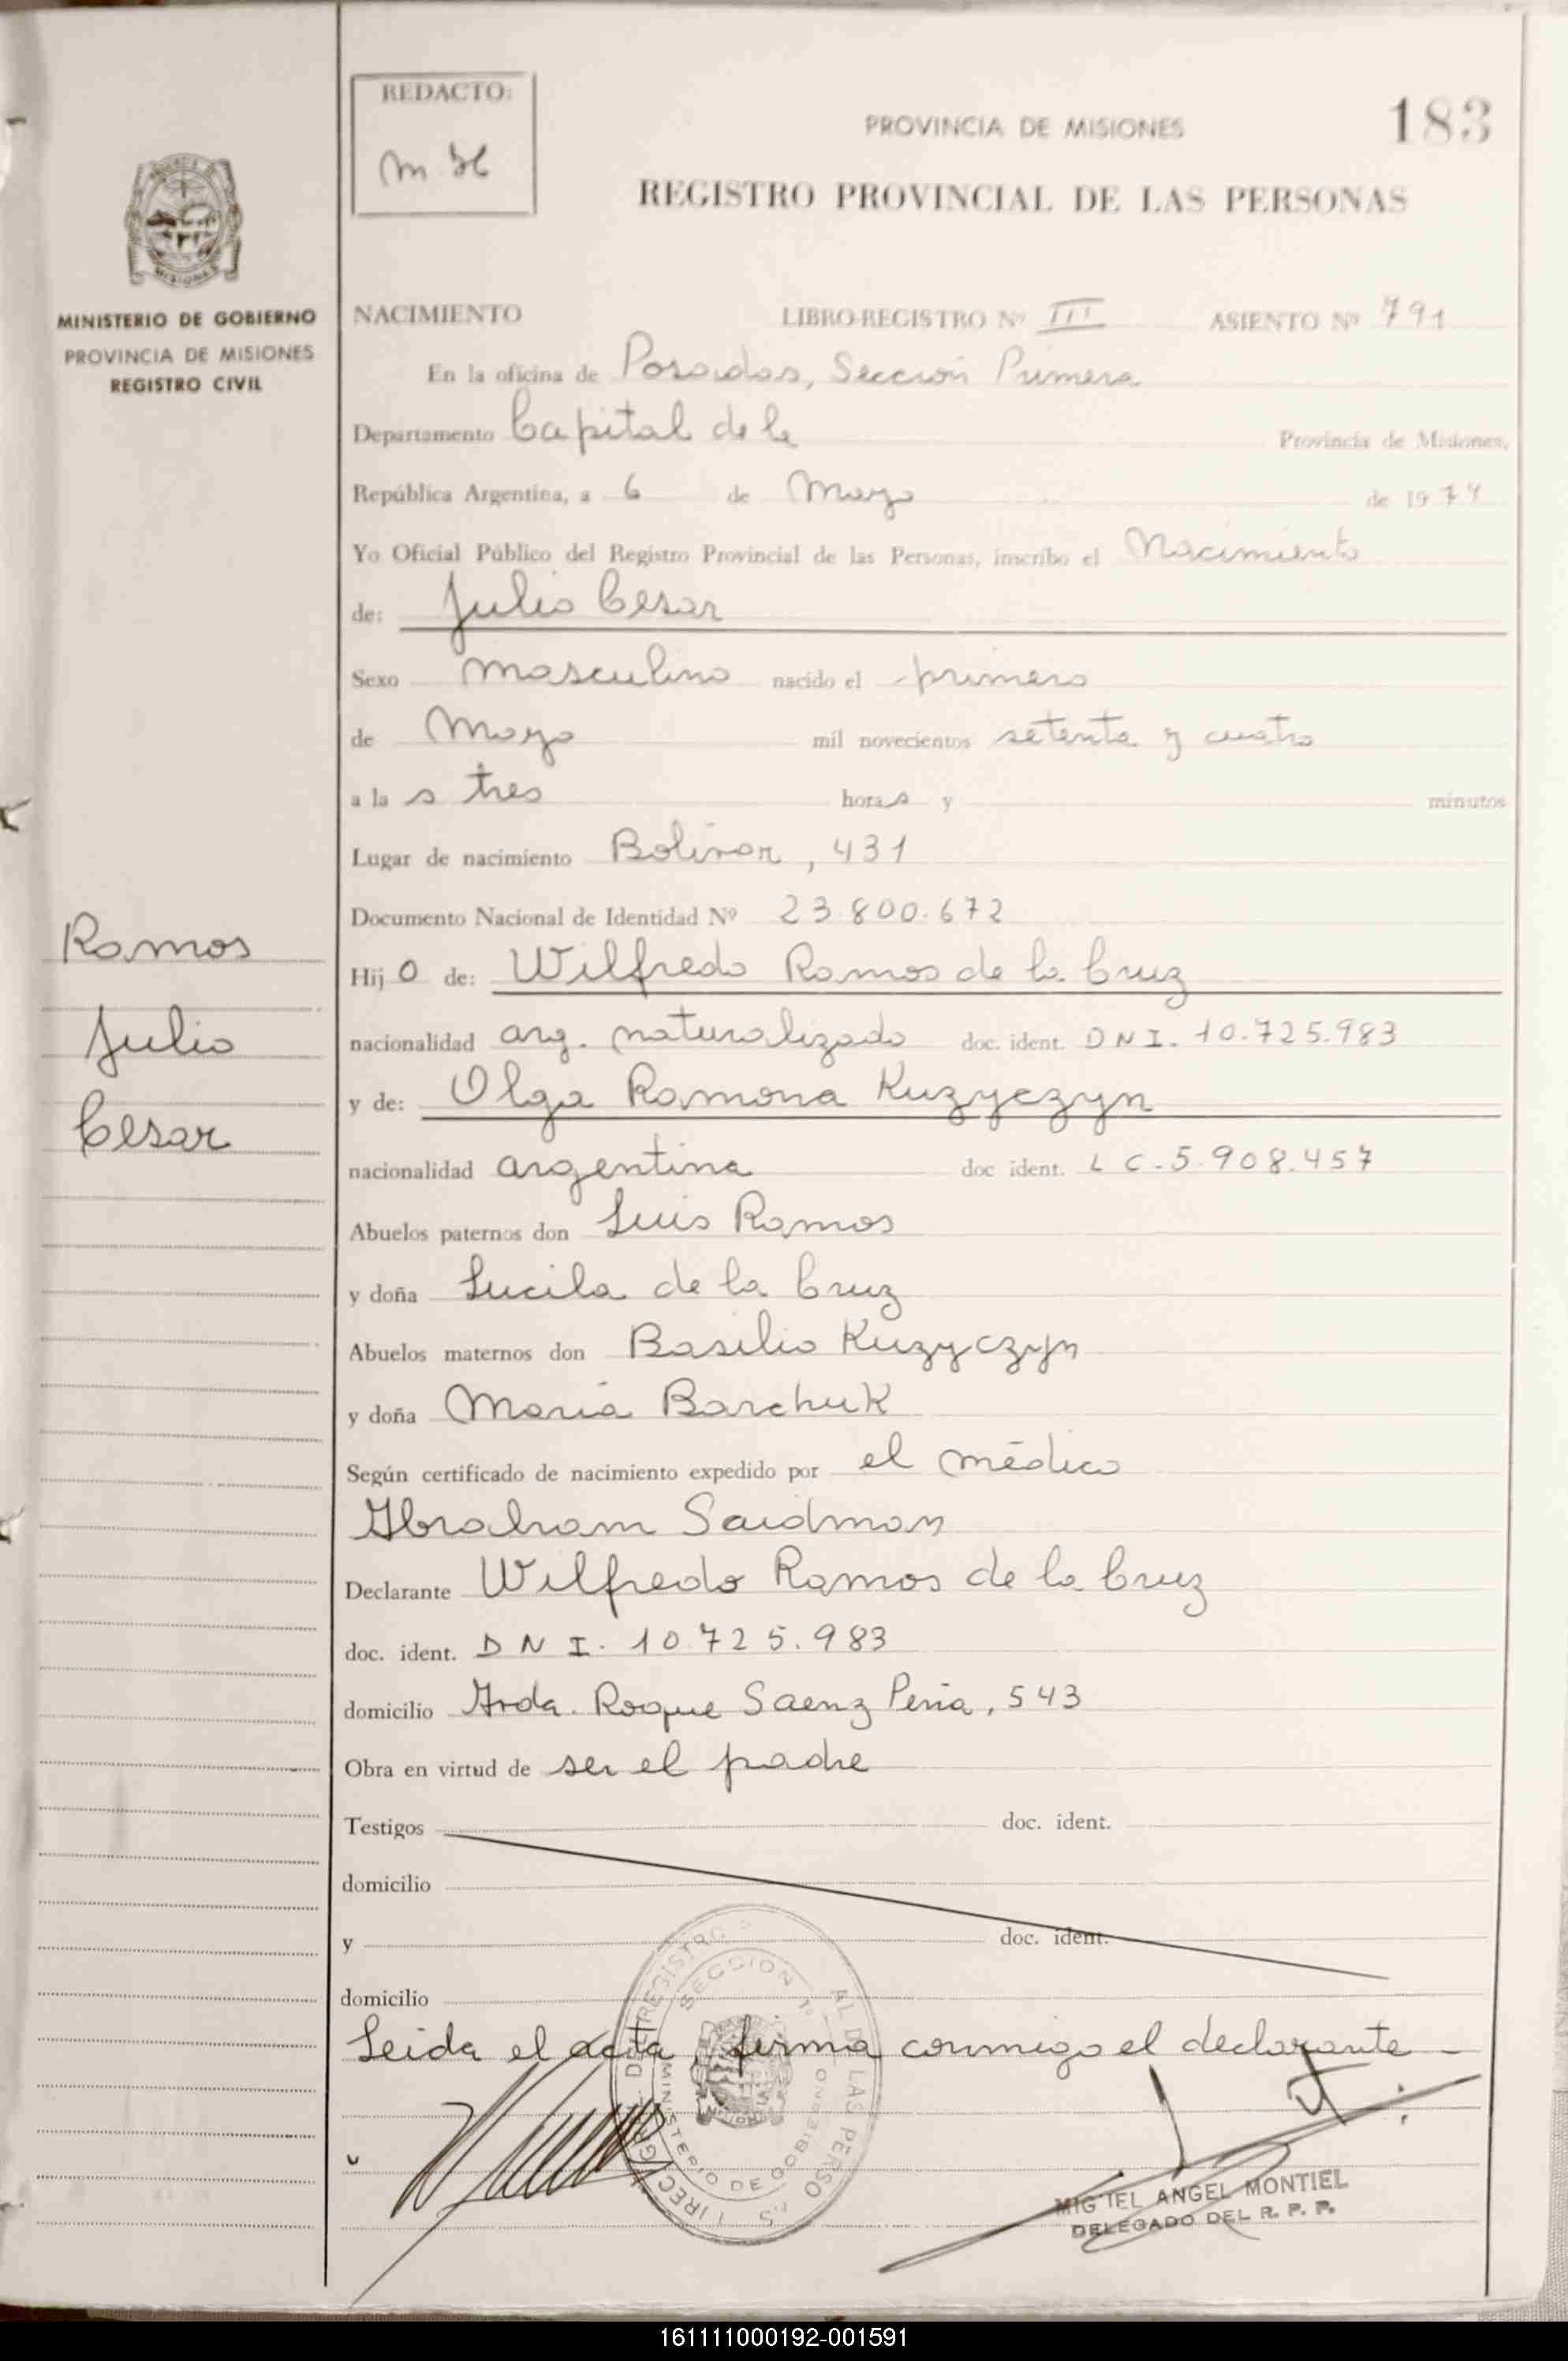 REDACTO:
PROVINCIA DE MISIONES
183
REGISTRO PROVINCIAL DE LAS PERSONAS
MISIONES
MINISTERIO DE GOBIERNO
PROVINCIA DE MISIONES
REGISTRO CIVIL
NACIMIENTO LIBRO-REGISTRO Nº III ASIENTO Nº 791
En la oficina de Posadas, Sección Primera
Departamento Capital de la Provincia de Misiones,
República Argentina, a 6 de Mayo de 1974
Yo Oficial Público del Registro Provincial de las Personas, inscribo el Nacimiento
de: Julio Cesar
Sexo Masculino nacido el primero
de Mayo mil novecientos setenta y cuatro
a la s tres hora s y minutos
Lugar de nacimiento Bolivar, 431
Documento Nacional de Identidad Nº 23.800.672
Ramos
Julio
Cesar
Hij o de: Wilfredo Ramos de la Cruz
nacionalidad arg. naturalizado doc. ident. DNI. 10.725.983
y de: Olga Ramona Kuzyczyn
nacionalidad argentina doc ident. L C. 5.908.457
Abuelos paternos don Luis Ramos
y doña Lucila de la Cruz
Abuelos maternos don Basilio Kuzyczyn
y doña Maria Barchuk
Según certificado de nacimiento expedido por el médico
Abraham Saidman
Declarante Wilfredo Ramos de la Cruz
doc. ident. DNI. 10.725.983
domicilio Avda. Roque Saenz Peña, 543
Obra en virtud de ser el padre
Testigos doc. ident.
domicilio
y doc. ident.
domicilio
Leida el acta, firma conmigo el declarante
SECCION 1º
MINISTERIO DE GOBIERNO
MIGUEL ANGEL MONTIEL
DELEGADO DEL R. P. P.
161111000192-001591